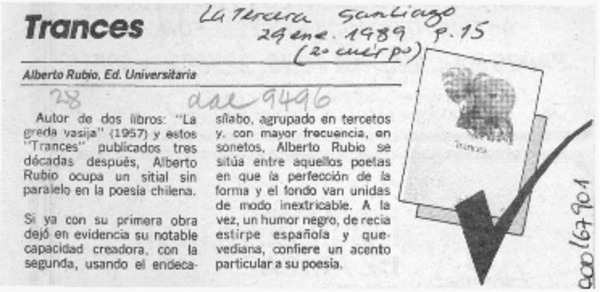 Trances
La Tercera Santiago
29 ene. 1989 p. 15
(2o cuerpo)
Alberto Rubio, Ed. Universitaria
28
dae 9496
Autor de dos libros: "La
greda vasija" (1957) y estos
"Trances" publicados tres
décadas después, Alberto
Rubio ocupa un sitial sin
paralelo en la poesía chilena.
Si ya con su primera obra
dejó en evidencia su notable
capacidad creadora, con la
segunda, usando el endeca-
sílabo, agrupado en tercetos
y, con mayor frecuencia, en
sonetos, Alberto Rubio se
sitúa entre aquellos poetas
en que la perfección de la
forma y el fondo van unidas
de modo inextricable. A la
vez, un humor negro, de recia
estirpe española y que-
vediana, confiere un acento
particular a su poesía.
Trances
000167901